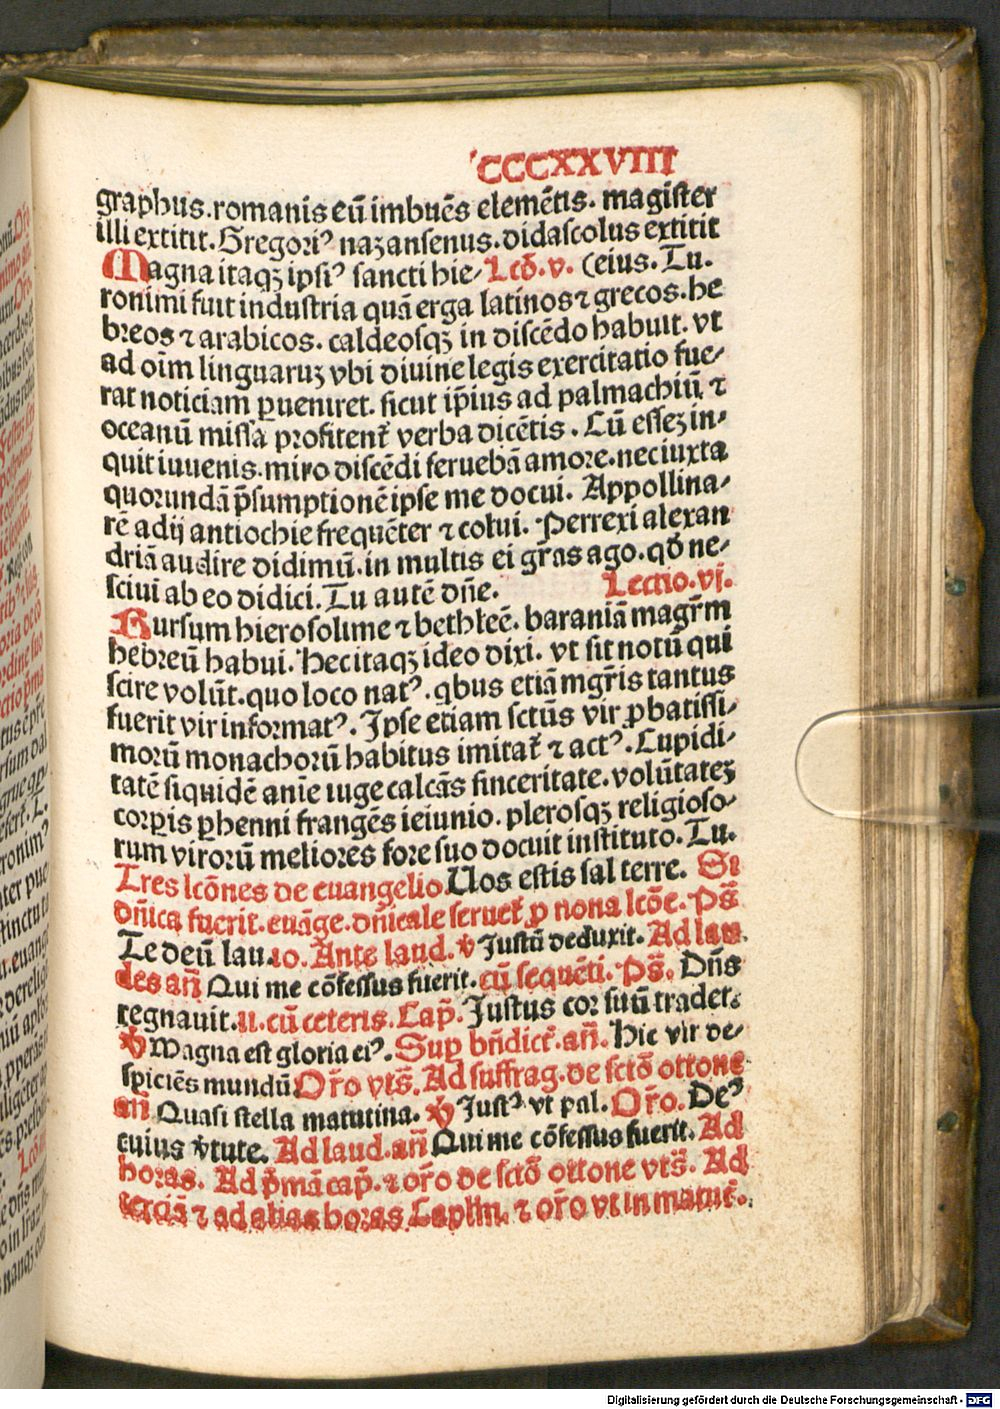 CCCXXVIII
graphus.romanis eū imbuēs elemētis. magister
illi extitit. Gregoriꝰ nazansenus.didascolus extitit
Magna itaqꝫ ipsiꝰ sancti hie/ Lcō.v. (eius. Tu.
ronimi fuit industria quā erga latinos ⁊ grecos.he
breos ⁊ arabicos. caldeosqꝫ in discēdo habuit. vt
ad oīm linguaruꝫ vbi diuine legis exercitatio fue/
rat noticiam ꝑueniret. sicut ip̄ius ad palmachiū ⁊
oceanū missa profitent̄ verba dicētis. Cū esseꝫ in-
quit iuuenis.miro discēdi feruebā amore.nec iuxta
quorundā p̄sumptionē ipse me docui. Appollina/
rē adij antiochie frequēter ⁊ colui. Perrexi alexan
driā audire didimū.in multis ei gr̄as ago.qđ ne/
sciui ab eo didici.Tu autē dn̄e. Lectio.vj.
Rursum hierosolime ⁊ bethleē. baraniā magr̄m
hebreū habui. Hec itaqꝫ ideo dixi. vt sit notū qui
scire volūt.quo loco natꝰ.qbus etiā mgr̄is tantus
fuerit vir informatꝰ. Ipse etiam sctūs vir ꝓbatissi/
morū monachorū habitus imitat̄ ⁊ actꝰ. Cupidi/
tatē siquidē anīe iuge calcās sinceritate.volūtateꝫ
corꝑis ꝑhenni frangēs ieiunio. plerosqꝫ religioso/
rum virorū meliores fore suo docuit instituto. Tu.
Tres lcōnes de euangelio.Uos estis sal terre. Si
dn̄ica fuerit.euāge.dn̄icale seruet̄ ꝓ nona lcōe. Ps̄
Te deū lau.10. Ante laud. ℣ Justū deduxit. Ad lau
des an̄ Qui me cōfessus fuerit.cū sequēti. Ps̄. Dn̄s
regnauit.11.cū ceteris.Cap̄. Justus cor suū tradet.
℣ Magna est gloria eiꝰ.Suꝑ bn̄dict̄.an̄. Hic vir de/
spiciēs mundū.Or̄o vts̄. Ad suffrag.de sctō ottone
an̄ Quasi stella matutina. ℣ Justꝰ vt pal.Or̄o. Deꝰ
cuius v̄tute. Ad laud.an̄ Qui me cōfessus fuerit. Ad
horas. Ad p̄mā cap̄.⁊ or̄o de sctō ottone vts̄. Ad
terciā ⁊ ad alias horas Caplm̄. ⁊ or̄o vt in matut̄.
Digitalisierung gefördert durch die Deutsche Forschungsgemeinschaft - DFG